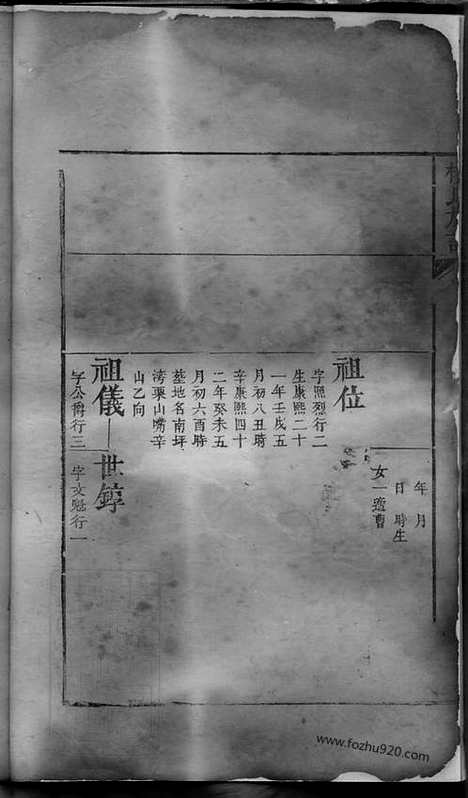 年月
日時生
女一適曹
祖位
字熙烈行二
生康熙二十
一年壬戌五
月初八丑時
辛康熙四十
二年癸未五
月初六酉時
墓地名南坪
湾栗山嘴辛
山乙向
祖儀
世錞
字公爵行三
字文魁行一
www.fozhu920.com